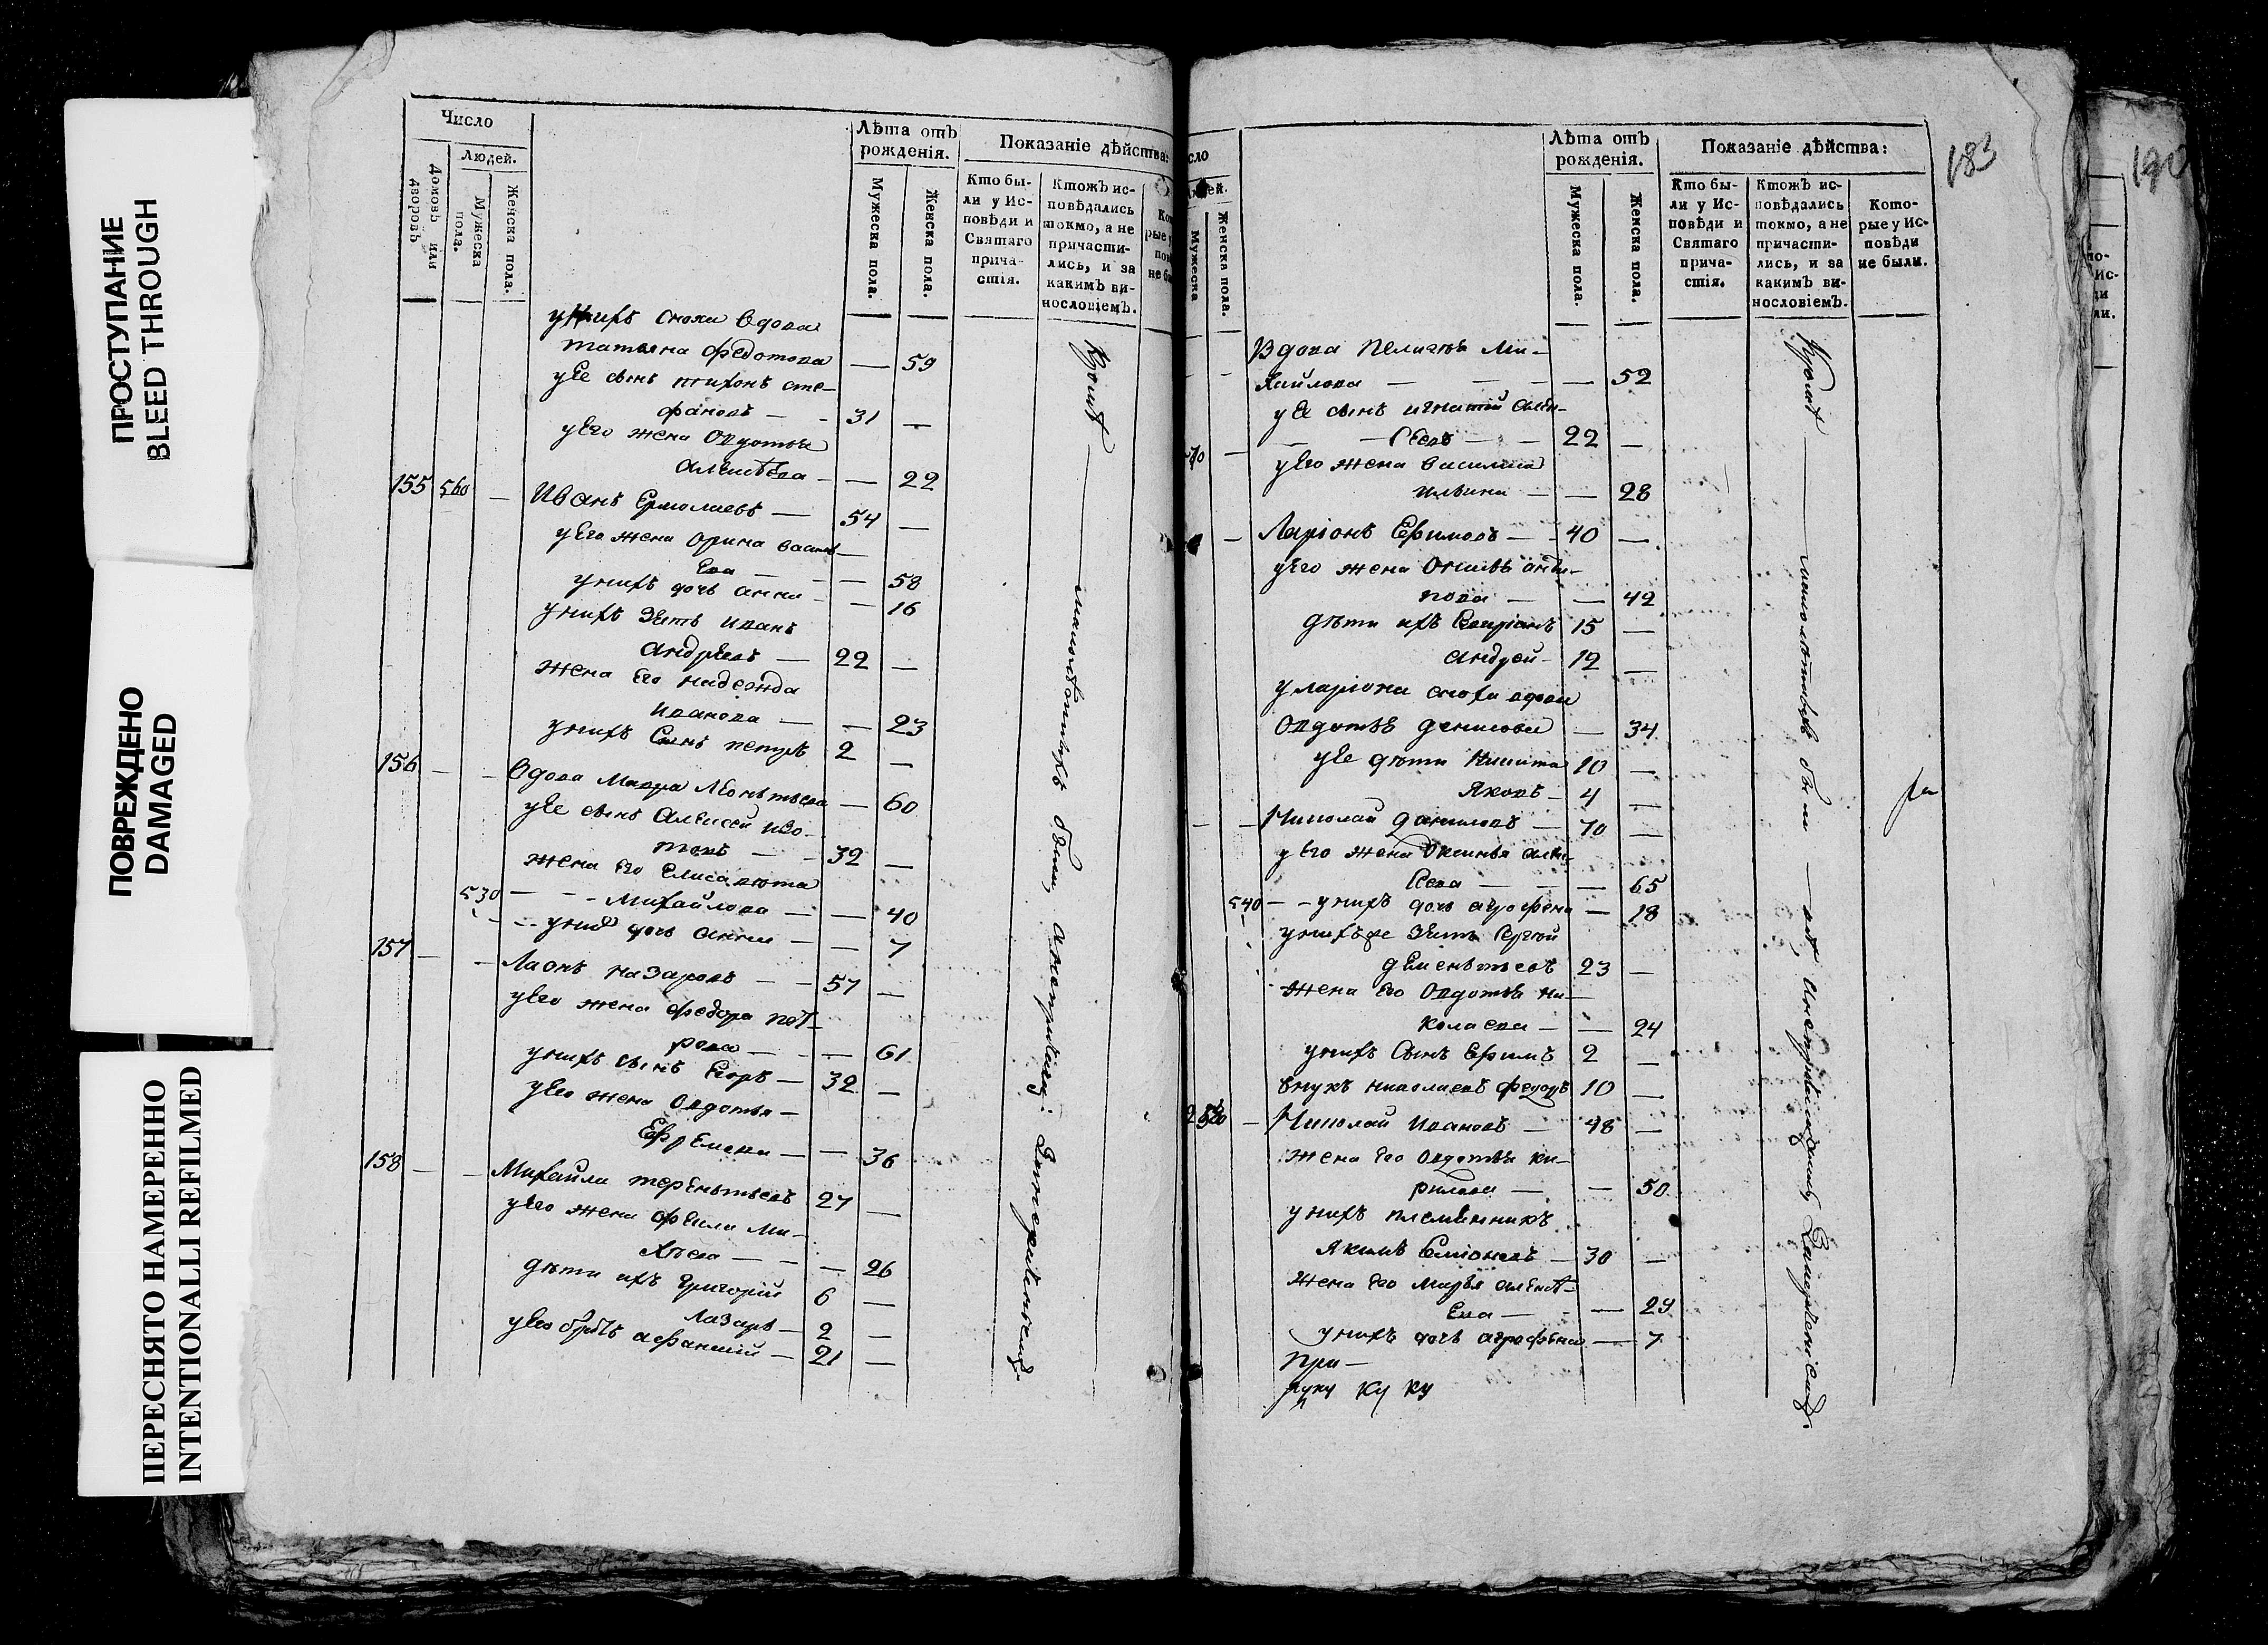 ПРОСТУПАНИЕ
BLEED THROUGH
ПОВРЕЖДЕНО
DAMAGED
ПЕРЕСНЯТО НАМЕРЕННО
INTENTIONALLI REFILMED
Число
Людей.
Домовъ или дворовъ
Мужеска пола.
Женска пола.
Лѣта отъ рожденія.
Мужеска пола.
Женска пола.
Показаніе дѣйства:
Кто бы-
ли у Ис-
повѣди и
Святаго
прича-
стія.
Ктожъ ис-
повѣдались
токмо, а не
причасти-
лись, и за
какимъ ви-
нословіемъ.
унихъ сноха вдова
татьяна федотова — 59
уее сынъ тихонъ сте-
фановъ — 31 —
уего жена овдотья
алексѣева — — 22
155 560 — Иванъ Ермолаевъ — 54 —
уего жена орина васил-
ева — — 58
унихъ дочь анна — 16
унихъ зять иванъ
андреевъ — 22 —
жена его надежда
иванова — — 23
унихъ сынъ петръ 2 —
156 — — вдова мавра леонтьева — 60
уее сынъ алексей изо-
товъ — 32 —
жена его елисавета
530 — михайлова — — 40
унихъ дочь анна — — 7
157 — — лаонъ назаровъ — 57 —
уего жена федора пет-
рова — — 61
унихъ сынъ егоръ — 32 —
уего жена овдотья —
ефремова — — 36
158 — — михайла терентьевъ 27 —
уего жена фекла ми-
хѣева — — 26
дѣти ихъ григорий 6 —
лазарь — 2 —
уего братъ афанасий — 21 —
Кромѣ — малолѣтнихъ были
183
сло
Мужеска
Женска пола.
Лѣта отъ рожденія.
Мужеска пола.
Женска пола.
Показаніе дѣйства:
Кто бы-
ли у Ис-
повѣди и
Святаго
прича-
стія.
Ктожъ ис-
повѣдались
токмо, а не
причасти-
лись, и за
какимъ ви-
нословіемъ.
Кото-
рые у Ис-
повѣди
не были.
вдова пелагея ми-
хайлова — — 52
уее сынъ игнатий алек-
сеевъ — 22 —
уего жена василиса
ильина — — 28
— Ларіонъ Ефимовъ — 40 —
уего жена
— 42
дѣти ихъ 15 —
андрей — 12 —
уларіона сноха вдова
овдотья денисова — 34
уее дѣти никита 10 —
яковъ — 4 —
— — Николай даниловъ — 70 —
уего жена аксинья алек-
сеева — — 65
540 — унихъ дочь агрофена — 18
унихъже зять сергей
дементьевъ 23 —
жена его овдотья ни-
колаева — — 24
унихъ сынъ ефимъ 2 —
внукъ николаевъ федоръ 10 —
— Николай ивановъ — 48 —
жена его овдотья ки-
рилова — — 50
унихъ племянникъ
якимъ — 30 —
жена его марья алексѣ-
ева — — 29
унихъ дочь агрофена — 7
при-
ку ку
Кромѣ — малолѣтнихъ были